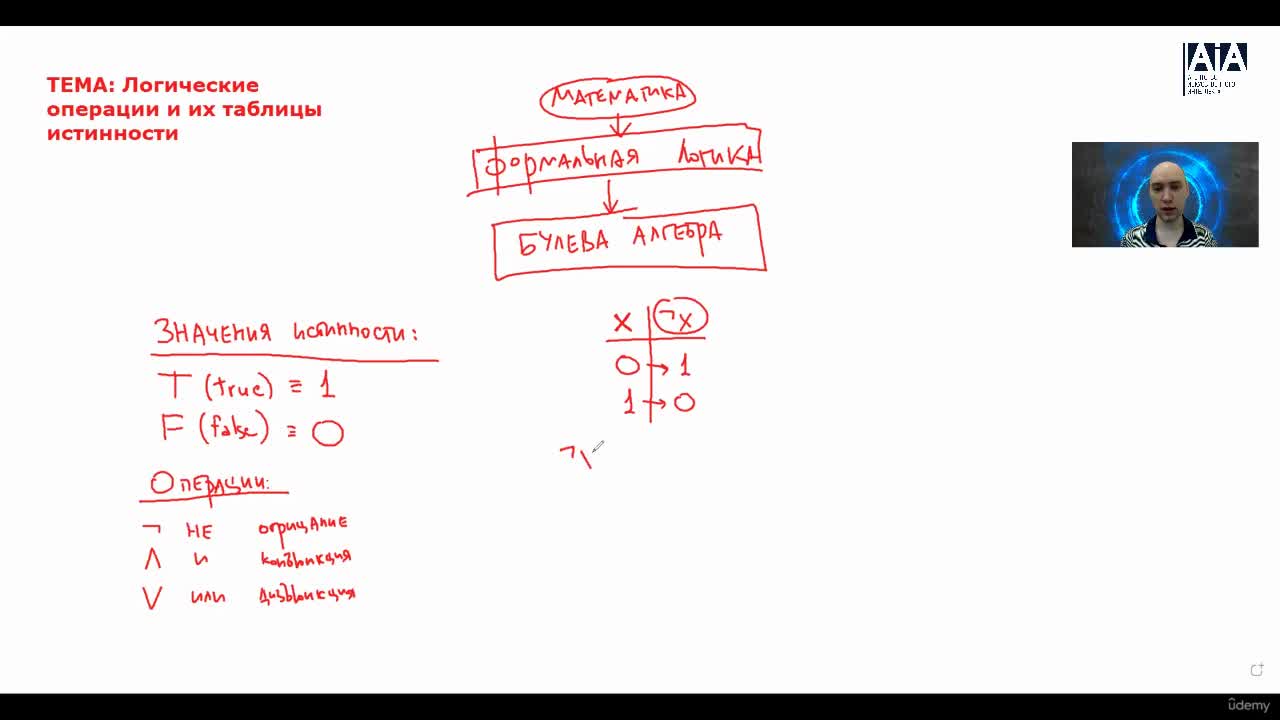 ТЕМА: Логические
операции и их таблицы
истинности
AiA
МАТЕМАТИКА
ФОРМАЛЬНАЯ ЛОГИКА
БУЛЕВА АЛГЕБРА
ЗНАЧЕНИЯ ИСТИННОСТИ:
T (true) ≡ 1
F (false) ≡ 0
ОПЕРАЦИИ:
¬ НЕ отрицание
∧ и конъюнкция
∨ или дизъюнкция
X ¬X
0 → 1
1 → 0
¬
ûdemy